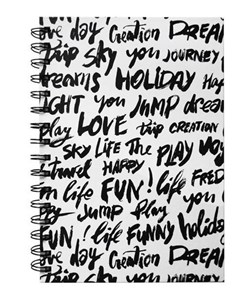 ve day Creation DREAM
Trip SKY you JOURNEY
reams HOLIDAY Hap
IGHT you JUMP dream
play LOVE trip CREATION
SKY LIFE THE PLAY Day
travel HAPPY
m life FUN! life FRED
By JUMP Play
FUN! life FUNNY holiday
ve day Creation DREAM